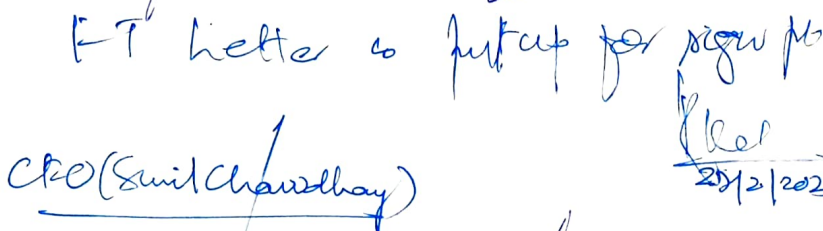 FT Letter is put up for sign pl
CEO (Sunil Chowdhary)
2/202